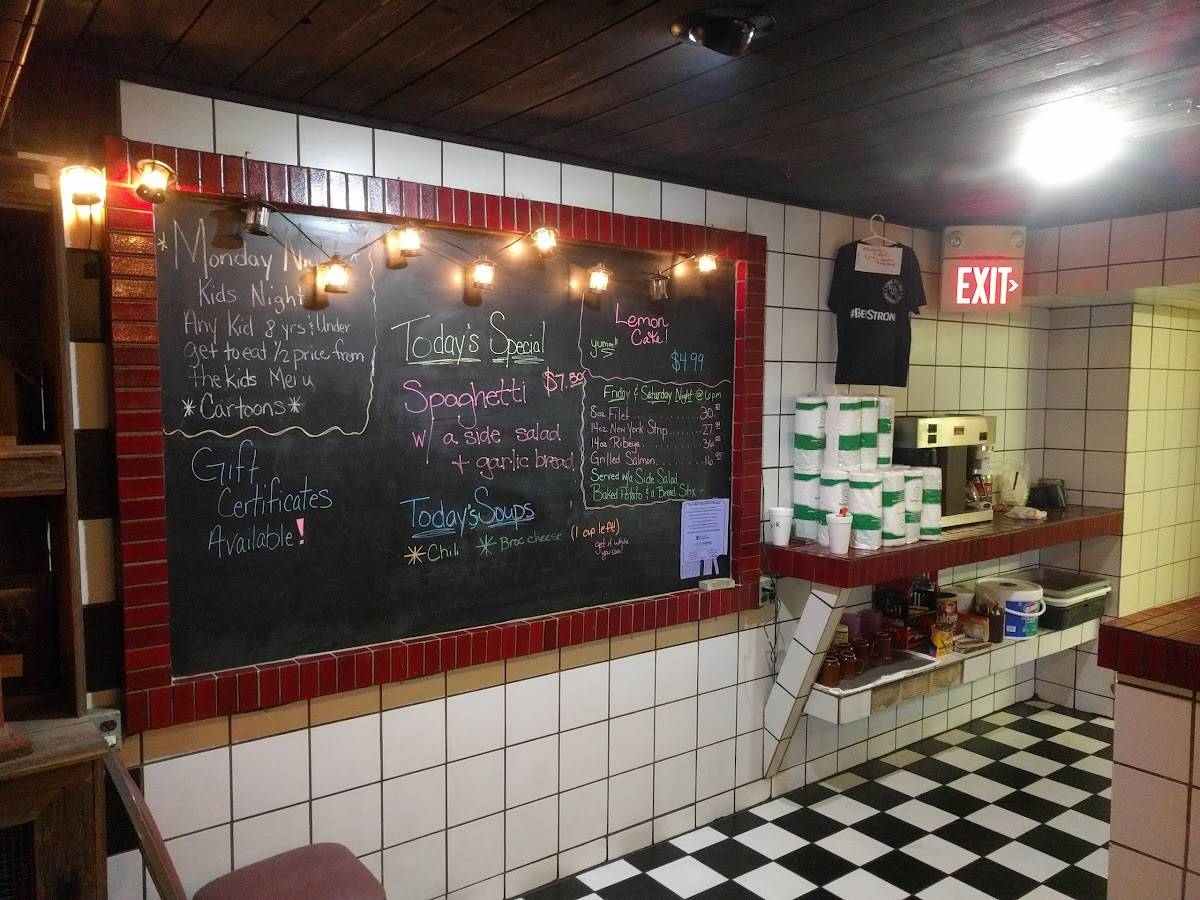 *Monday
Kids Night
Any Kid 8 yrs & Under
get to eat 1/2 price from
the Kids Menu
*Cartoons*
Gift
Certificates
Available!
Today's Special
Spaghetti $7.50
w/ a side salad
+ garlic bread
Today's Soups
*Chili *Broc cheese (1 cup left!)
get it while
you can!
Lemon
Cake!
yumm!!
$4.99
Friday & Saturday Night @ 6pm
8oz Filet........30
14oz New York Strip.....27
14oz Ribeye........36
Grilled Salmon........16 95
Served w/a Side Salad
Baked Potato & a Bread Stix
#BE STRON
EXIT>